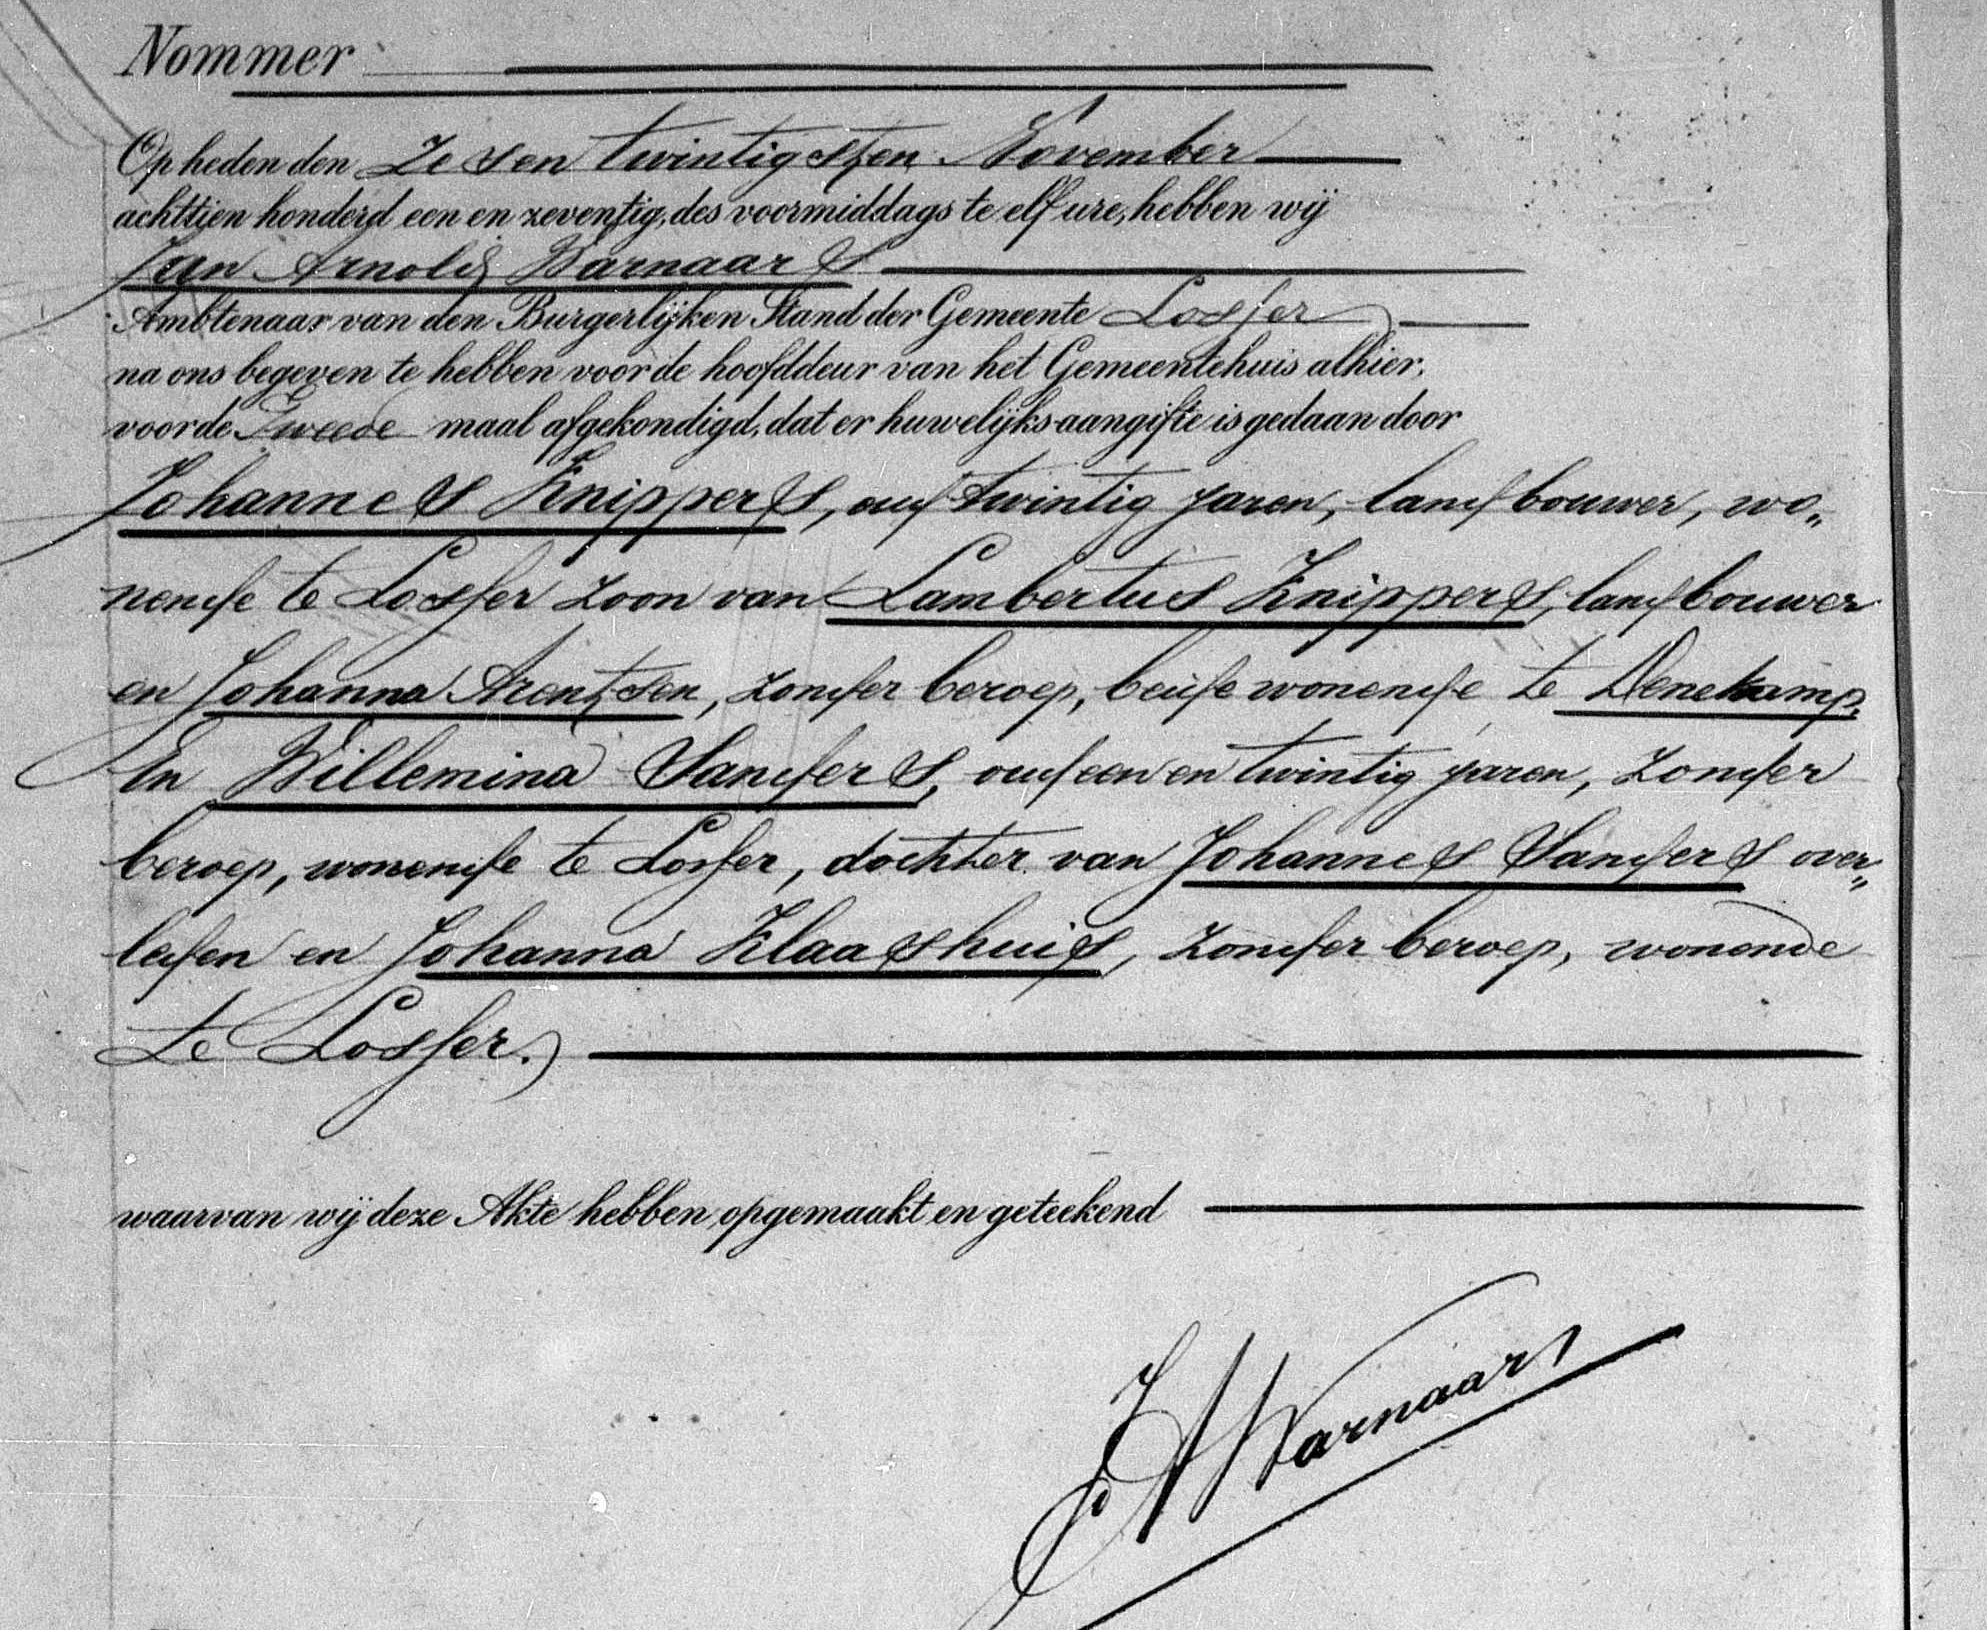 Nommer
Op heden den Zes en twintigsten November
achttien honderd een en zeventig, des voormiddags te elf ure, hebben wij
Jan Arnold Warnaars
Ambtenaar van den Burgerlijken Stand der Gemeente Losser
na ons begeven te hebben voor de hoofddeur van het Gemeentehuis alhier,
voor de Tweede maal afgekondigd, dat er huwelijks-aangifte is gedaan door
Johannes Knippers, oud twintig jaren, landbouwer, wo„
nende te Losser zoon van Lambertus Knippers, landbouwer
en Johanna Arentsen, zonder beroep, beide wonende te Denekamp.
En Willemina Sanders, oud een en twintig jaren, zonder
beroep, wonende te Losser, dochter van Johannes Sanders over„
leden en Johanna Klaashuis, zonder beroep, wonende
te Losser.
waarvan wij deze Akte hebben opgemaakt en geteekend
JA Warnaars